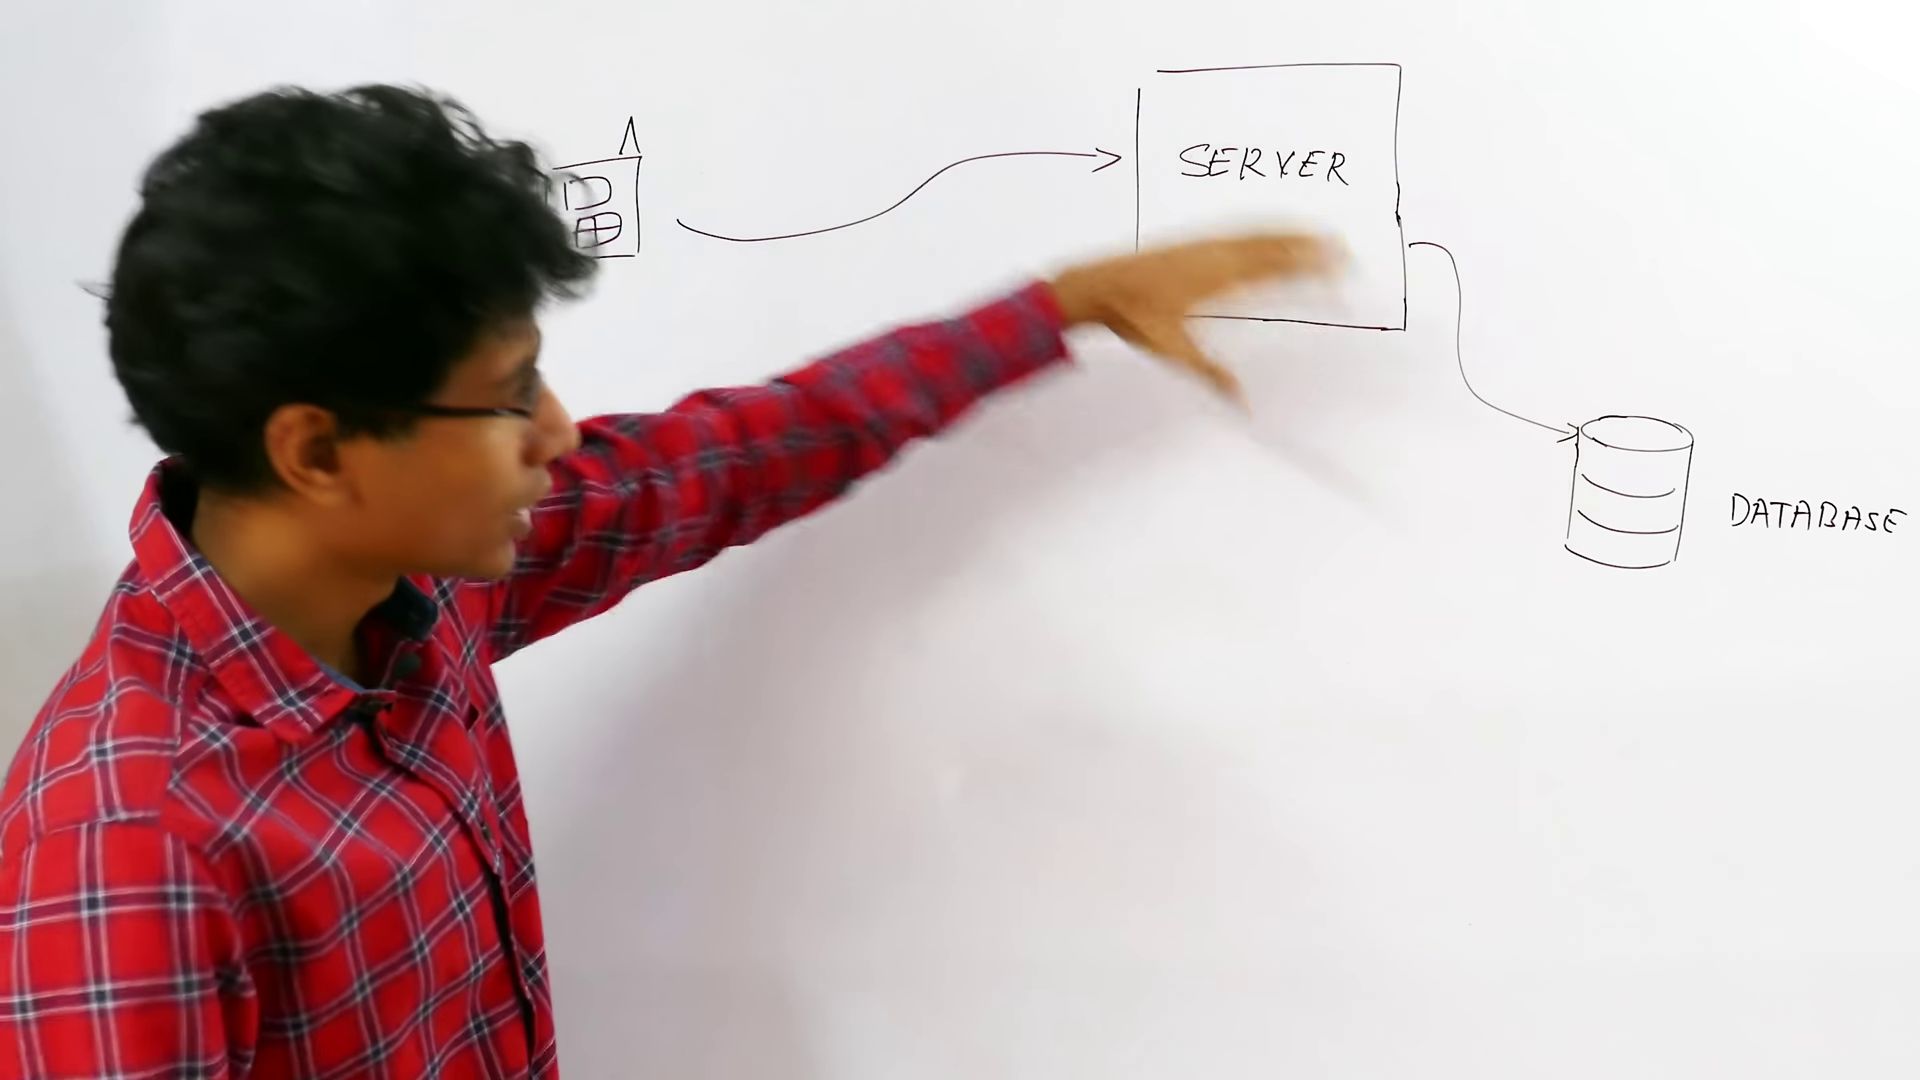 SERVER
DATABASE